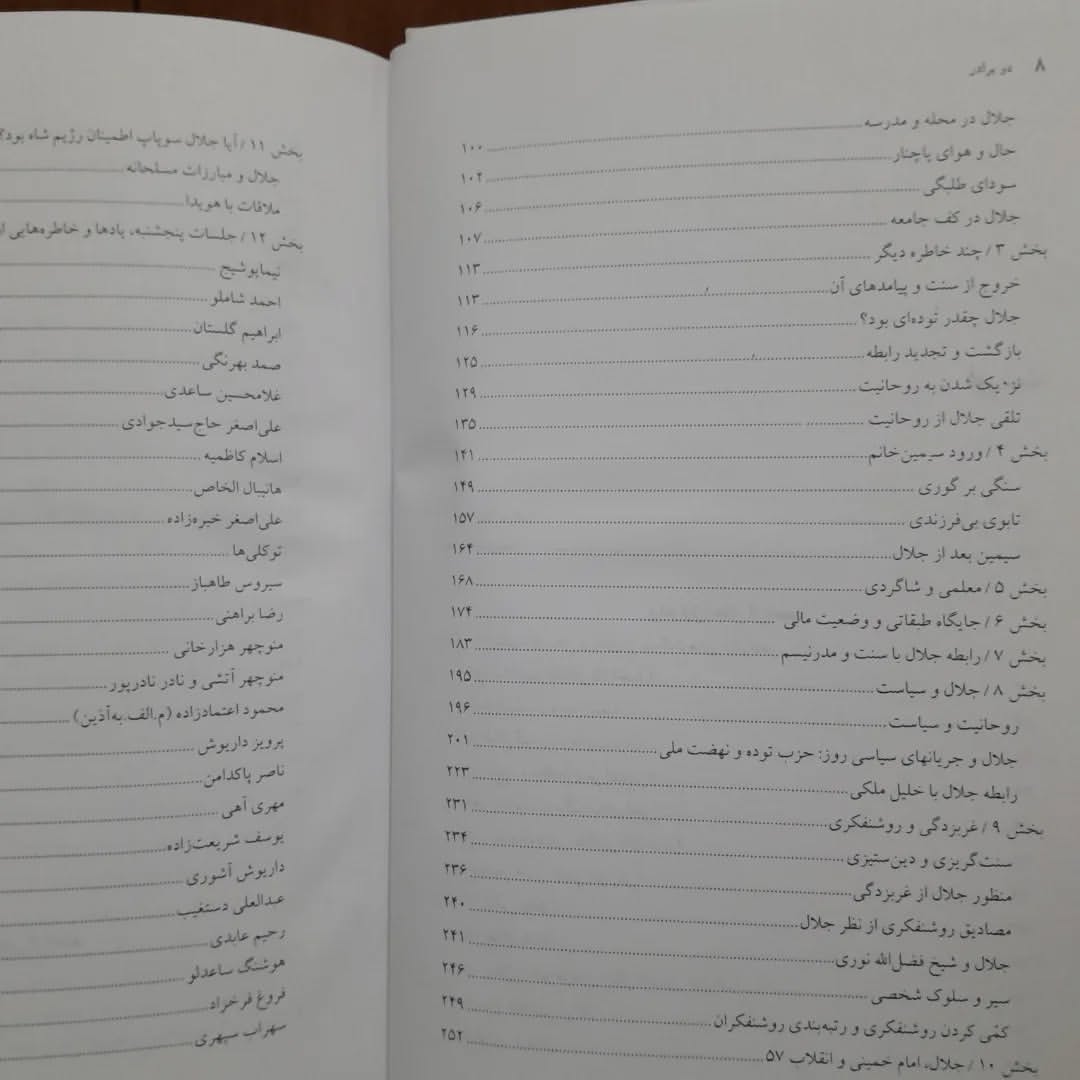 ۸ دو برادر
جلال در محله و مدرسه ........ ۱۰۰
حال و هوای پاچنار ........ ۱۰۲
سودای طلبگی ........ ۱۰۶
جلال در کف جامعه ........ ۱۰۷
بخش ۳ / چند خاطره دیگر ........ ۱۱۳
خروج از سنت و پیامدهای آن ........ ۱۱۳
جلال چقدر توده‌ای بود؟ ........ ۱۱۶
بازگشت و تجدید رابطه ........ ۱۲۵
نزدیک شدن به روحانیت ........ ۱۲۹
تلقی جلال از روحانیت ........ ۱۳۵
بخش ۴ / ورود سیمین‌خانم ........ ۱۴۱
سنگی بر گوری ........ ۱۴۹
تابوی بی‌فرزندی ........ ۱۵۷
سیمین بعد از جلال ........ ۱۶۴
بخش ۵ / معلمی و شاگردی ........ ۱۶۸
بخش ۶ / جایگاه طبقاتی و وضعیت مالی ........ ۱۷۴
بخش ۷ / رابطه جلال با سنت و مدرنیسم ........ ۱۸۳
بخش ۸ / جلال و سیاست ........ ۱۹۵
روحانیت و سیاست ........ ۱۹۶
جلال و جریانهای سیاسی روز: حزب توده و نهضت ملی ........ ۲۰۱
رابطه جلال با خلیل ملکی ........ ۲۲۳
بخش ۹ / غربزدگی و روشنفکری ........ ۲۳۱
سنت‌گریزی و دین‌ستیزی ........ ۲۳۴
منظور جلال از غربزدگی ........ ۲۳۶
مصادیق روشنفکری از نظر جلال ........ ۲۴۰
جلال و شیخ فضل‌الله نوری ........ ۲۴۱
سیر و سلوک شخصی ........ ۲۴۶
کمّی کردن روشنفکری و رتبه‌بندی روشنفکران ........ ۲۴۹
بخش ۱۰ / جلال، امام خمینی و انقلاب ۵۷ ........ ۲۵۲
بخش ۱۱ / آیا جلال سوپاپ اطمینان رژیم شاه بود؟
جلال و مبارزات مسلحانه ........
ملاقات با هویدا ........
بخش ۱۲ / جلسات پنجشنبه، یادها و خاطره‌هایی
نیمایوشیج ........
احمد شاملو ........
ابراهیم گلستان ........
صمد بهرنگی ........
غلامحسین ساعدی ........
علی‌اصغر حاج‌سیدجوادی ........
اسلام کاظمیه ........
هانیبال الخاص ........
علی‌اصغر خبره‌زاده ........
توکلی‌ها ........
سیروس طاهباز ........
رضا براهنی ........
منوچهر هزارخانی ........
منوچهر آتشی و نادر نادرپور ........
محمود اعتمادزاده (م.الف.به‌آذین) ........
پرویز داریوش ........
ناصر پاکدامن ........
مهری آهی ........
یوسف شریعت‌زاده ........
داریوش آشوری ........
عبدالعلی دستغیب ........
رحیم عابدی ........
هوشنگ ساعدلو ........
فروغ فرخزاد ........
سهراب سپهری ........